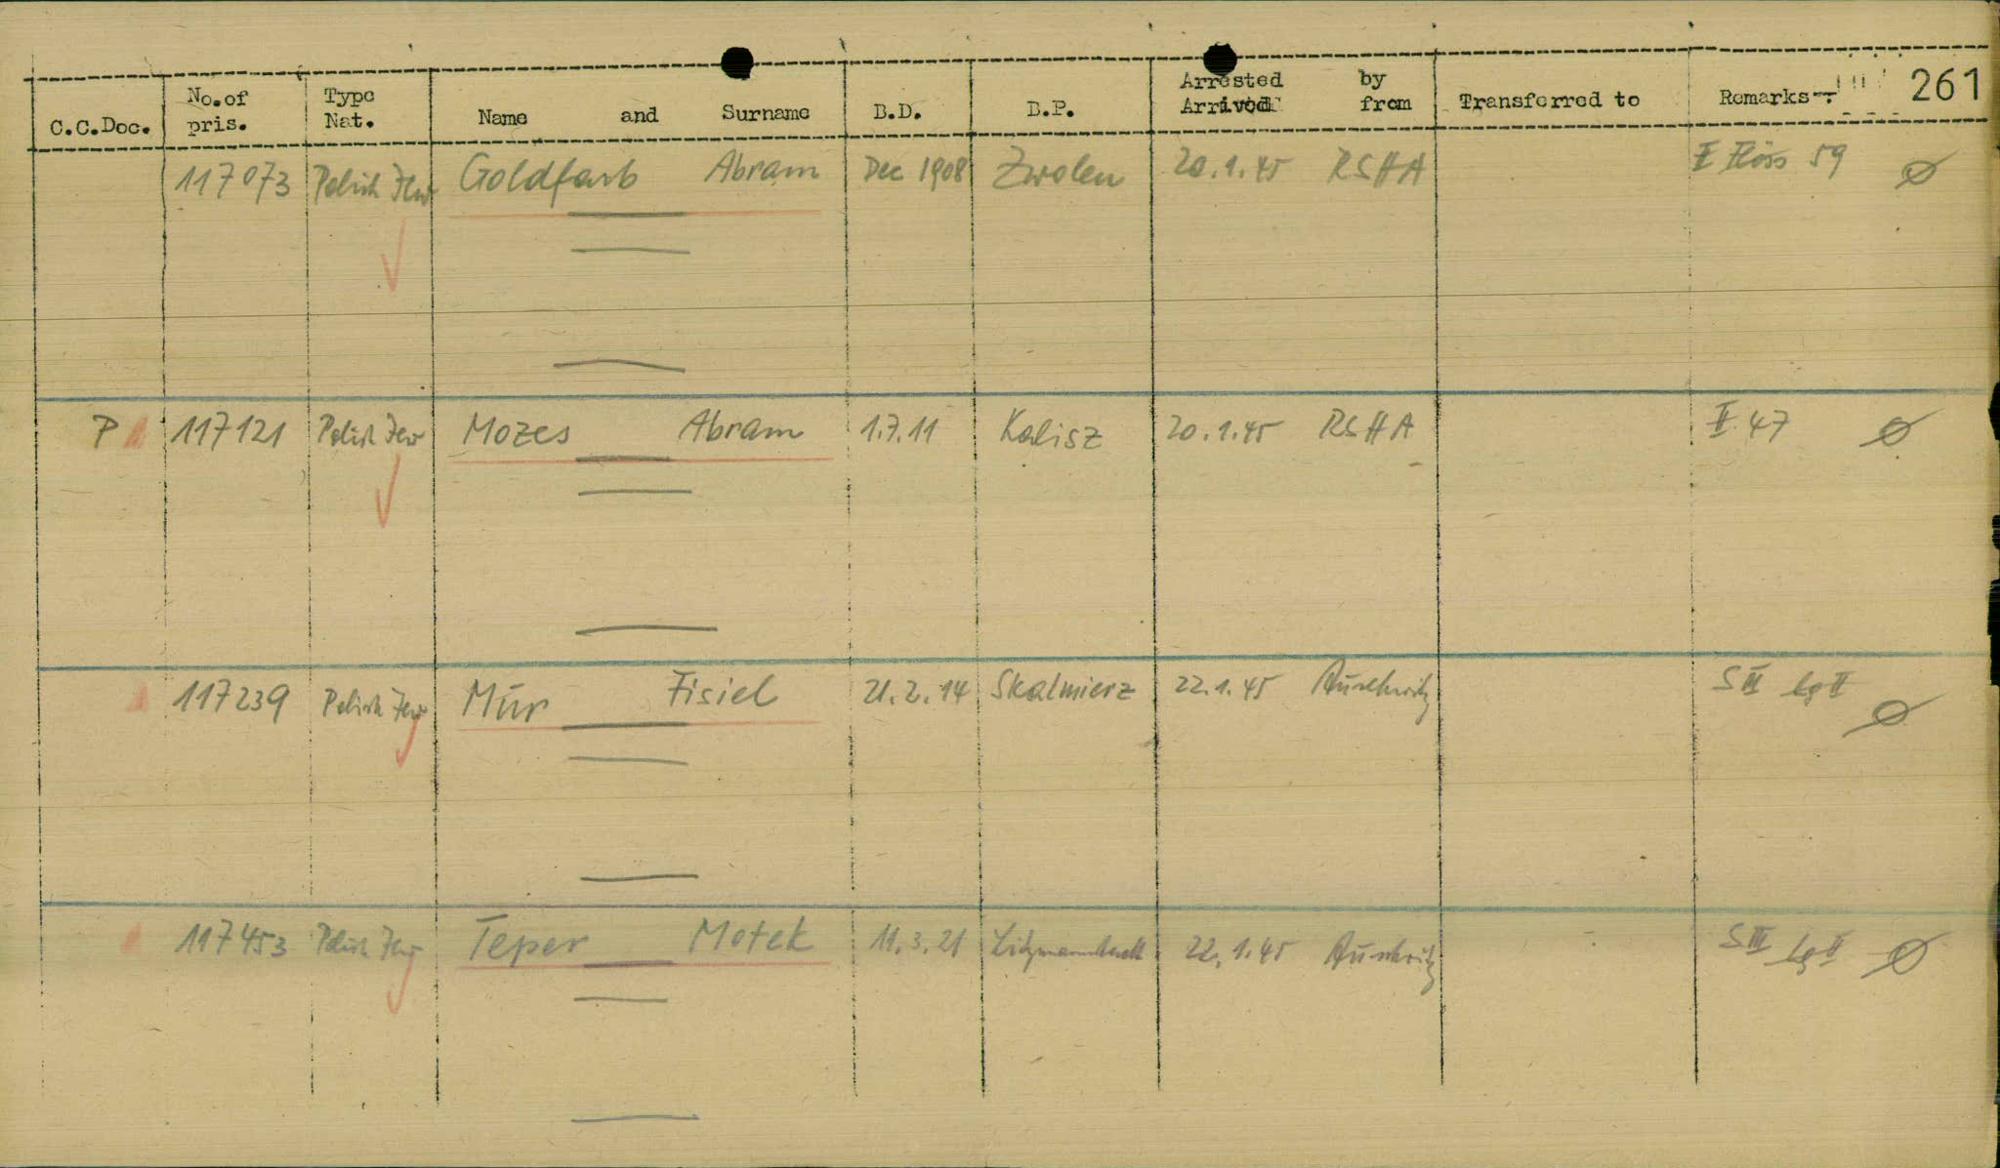 C.C.Doc. No. of pris. Type Nat. Name and Surname B.D. D.P. Arrested by Arrived from Transferred to Remarks 261
117073 Polish Jew Goldfarb Abram Dec 1908 Zwolen 20.1.45 RSHA II Floss 59 Ø
P 117121 Polish Jew Mozes Abram 1.7.11 Kalisz 20.1.45 RSHA II 47 Ø
117239 Polish Jew Mūr Fisiel 21.2.14 Skalmierz 22.1.45 Auschwitz S III lg II Ø
117453 Polish Jew Teper Motek 11.3.21 Litzmannstadt 22.1.45 Auschwitz S III lg II Ø